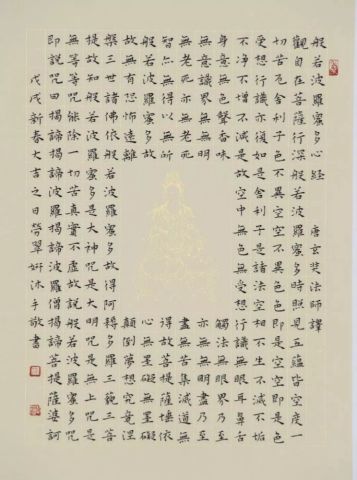 般若波羅蜜多心經　唐玄奘法師譯
觀自在菩薩行深般若波羅蜜多時照見五蘊皆空度一
切苦厄舍利子色不異空空不異色色即是空空即是色
受想行識亦復如是舍利子是諸法空相不生不滅不垢
不淨不增不減是故空中無色無受想行識無眼耳鼻舌
身意無色聲香味　觸法無眼界乃至
無意識界無無明　亦無無明盡乃至
無老死亦無老死　盡無苦集滅道無
智亦無得以無所　得故菩提薩埵依
般若波羅蜜多故　心無罣礙無罣礙
故無有恐怖遠離　顛倒夢想究竟涅
槃三世諸佛依般若波羅蜜多故得阿耨多羅三藐三菩
提故知般若波羅蜜多是大神咒是大明咒是無上咒是
無等等咒能除一切苦真實不虛故說般若波羅蜜多咒
即說咒曰揭諦揭諦波羅揭諦波羅僧揭諦菩提薩婆訶
戊戌新春大吉之日勞翠妍沐手敬書